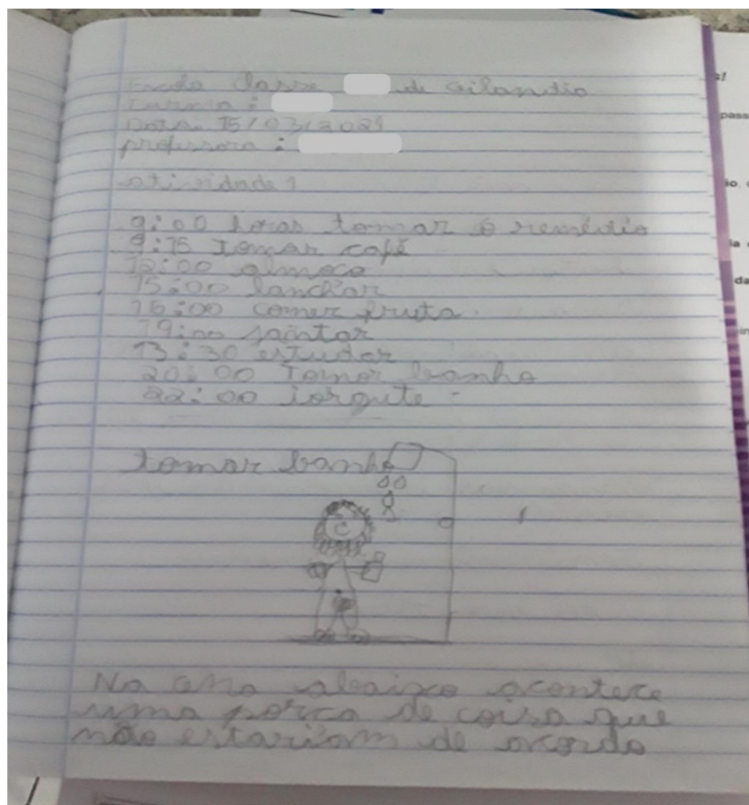 Escola Classe de Ceilandia
Data: 15/03/2021
professora :
atividade 1
9:00 horas tomar o remédio
9:15 Tomar café
12:00 almoço
15:00 lanchar
16:00 comer fruta.
19:00 jantar
13:30 estudar
20:00 Tomar banho
22:00 iorgute -
tomar banho
No ano abaixo acontece
uma porca de coisa que
não estariam de acordo